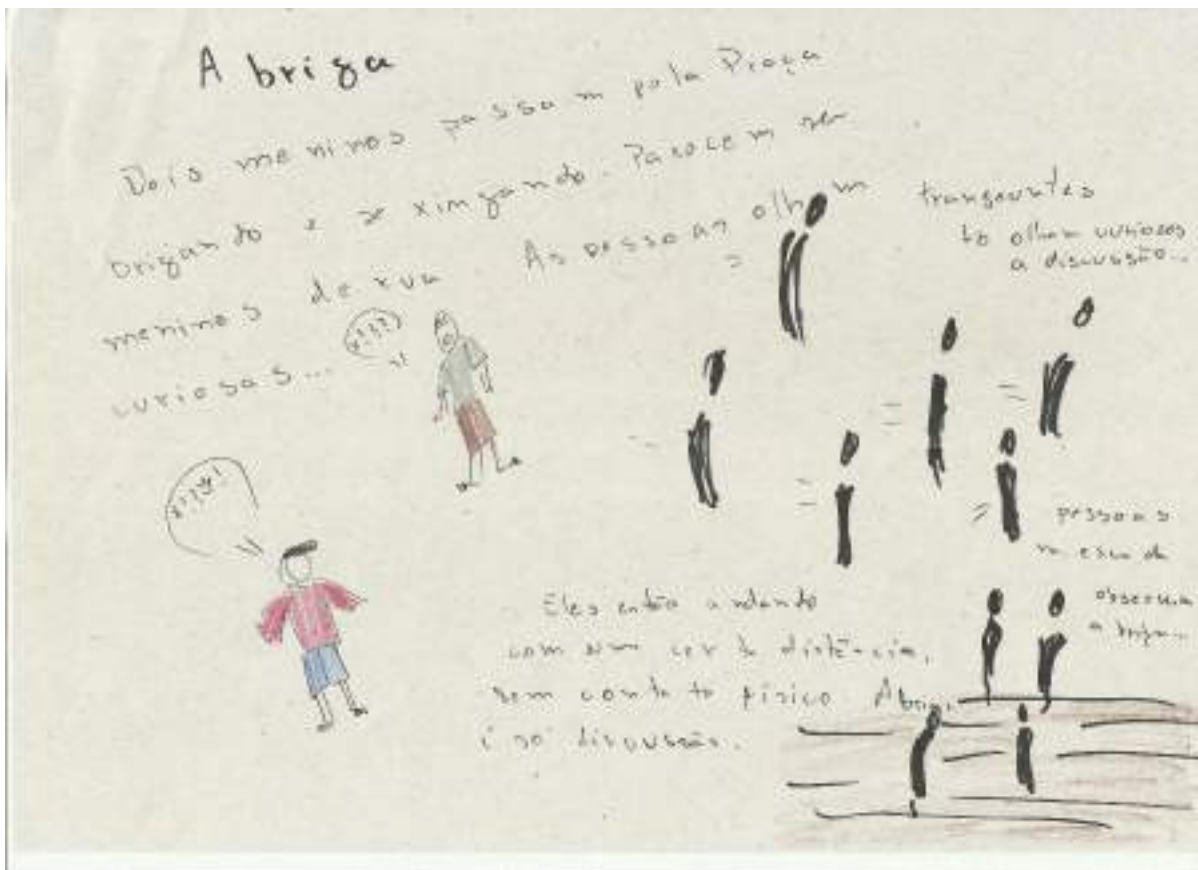 A briga
Dois meninos passam pela Praça
brigando e se xingando. Parecem ser
meninos de rua. As pessoas olham
curiosas...
transeuntes
olham curiosos
a discussão...
pessoas
na escada
observam
a briga...
Eles estão andando
com uma certa distância,
sem contato físico. A briga
é só discussão.